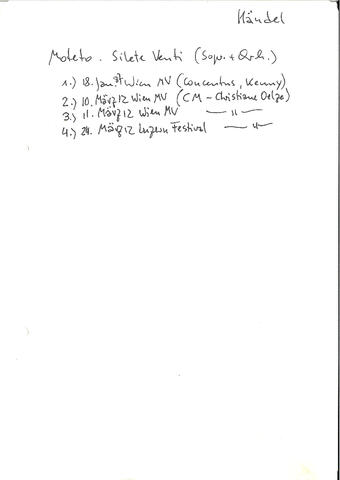 Händel
Moteto. Silete Venti (Sopr. + Orch.)
1.) 18. Jan. Wien MV (Concentus, Kenny)
2.) 10. März 12 Wien MV (CM - Christiane Oelze)
3.) 11. März 12 Wien MV — " —
4.) 24. März 12 Luzern Festival — " —